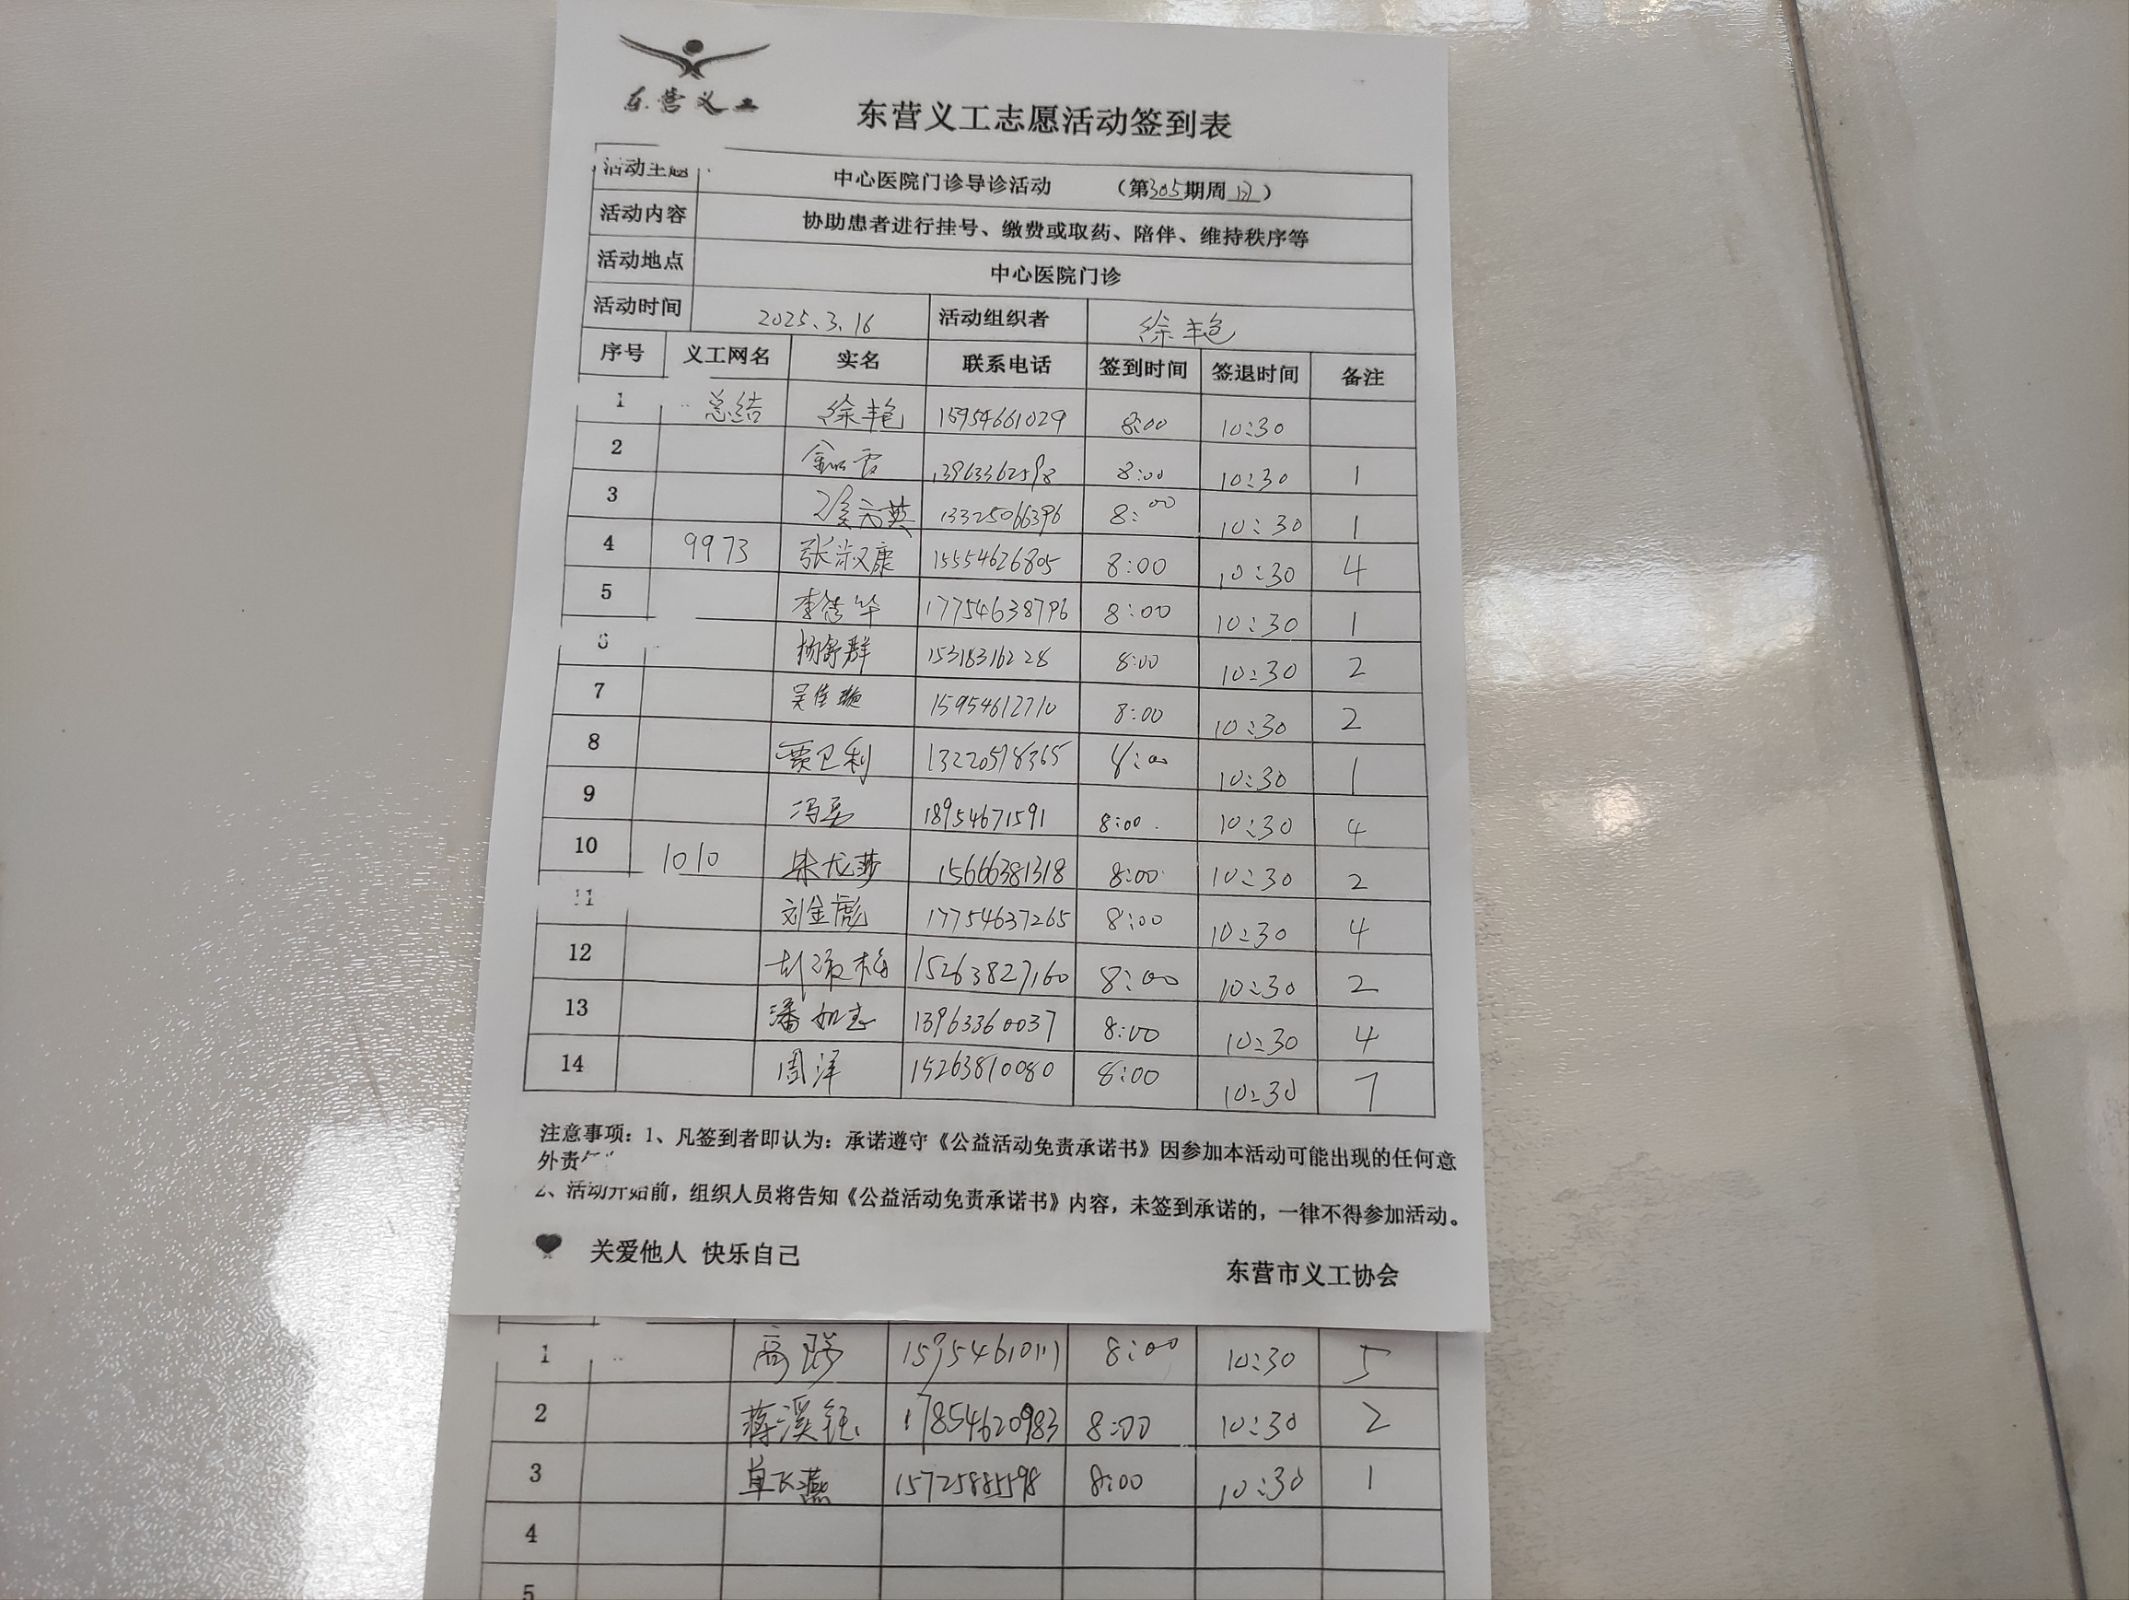 东营义工
东营义工志愿活动签到表
活动主题 中心医院门诊导诊活动 （第305期周日）
活动内容 协助患者进行挂号、缴费或取药、陪伴、维持秩序等
活动地点 中心医院门诊
活动时间 2025.3.16 活动组织者 徐丰艳
序号 义工网名 实名 联系电话 签到时间 签退时间 备注
1 总结 徐丰艳 15954661029 8:00 10:30
2 13963362598 8:00 10:30 1
3 13325066396 8:00 10:30 1
4 9973 张淑康 15554626805 8:00 10:30 4
5 17754638796 8:00 10:30 1
6 杨舒群 15318316228 8:00 10:30 2
7 吴佳璇 15954612710 8:00 10:30 2
8 贾卫利 13220518365 8:00 10:30 1
9 18954671591 8:00 10:30 4
10 1010 15666381318 8:00 10:30 2
11 刘金彪 17754637265 8:00 10:30 4
12 15263827160 8:00 10:30 2
13 潘如志 13963360037 8:00 10:30 4
14 周洋 15263810080 8:00 10:30 7
注意事项：1、凡签到者即认为：承诺遵守《公益活动免责承诺书》因参加本活动可能出现的任何意
外责
2、活动开始前，组织人员将告知《公益活动免责承诺书》内容，未签到承诺的，一律不得参加活动。
关爱他人 快乐自己
东营市义工协会
1 8:00 10:30 5
2 蒋溪钰 17854620983 8:00 10:30 2
3 单飞燕 15725885598 8:00 10:30 1
4
5